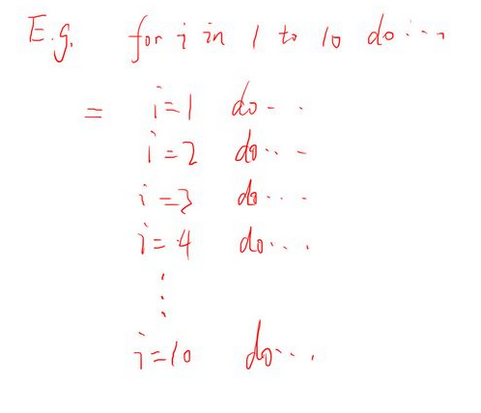 E.g. for i in 1 to 10 do...
= i=1 do...
i=2 do...
i=3 do...
i=4 do...
⋮
i=10 do...